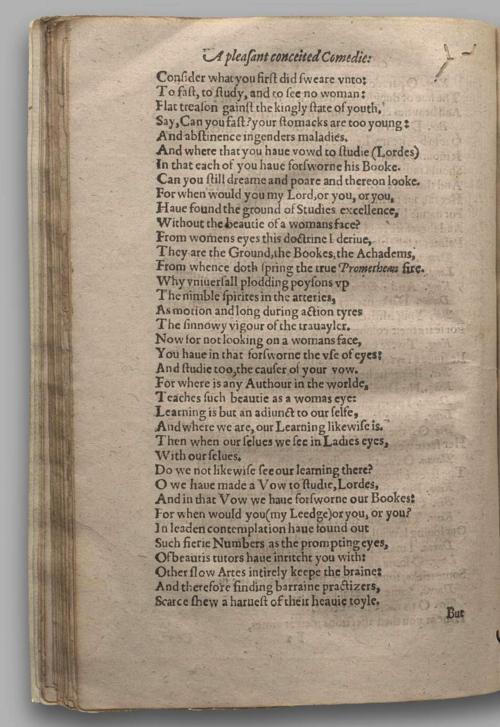 A pleaſant conceited Comedie:
Conſider what you firſt did ſweare vnto:
To faſt, to ſtudy, and to ſee no woman:
Flat treaſon gainſt the kingly ſtate of youth.
Say, Can you faſt? your ſtomacks are too young:
And abſtinence ingenders maladies.
And where that you haue vowd to ſtudie (Lordes)
In that each of you haue forſworne his Booke.
Can you ſtill dreame and poare and thereon looke.
For when would you my Lord, or you, or you,
Haue found the ground of Studies excellence,
Without the beautie of a womans face?
From womens eyes this doctrine I deriue,
They are the Ground, the Bookes, the Achadems,
From whence doth ſpring the true Promethean fire.
Why vniuerſall plodding poyſons vp
The nimble ſpirites in the arteries,
As motion and long during action tyres
The ſinnowy vigour of the trauayler.
Now for not looking on a womans face,
You haue in that forſworne the vſe of eyes:
And ſtudie too, the cauſer of your vow.
For where is any Authour in the worlde,
Teaches ſuch beautie as a womas eye:
Learning is but an adiunct to our ſelfe,
And where we are, our Learning likewiſe is.
Then when our ſelues we ſee in Ladies eyes,
With our ſelues.
Do we not likewiſe ſee our learning there?
O we haue made a Vow to ſtudie, Lordes,
And in that Vow we haue forſworne our Bookes:
For when would you (my Leedge) or you, or you?
In leaden contemplation haue found out
Such fierie Numbers as the prompting eyes,
Of beautis tutors haue inritcht you with:
Other ſlow Artes intirely keepe the braine:
And therefore finding barraine practizers,
Scarce ſhew a harueſt of their heauie toyle.
But